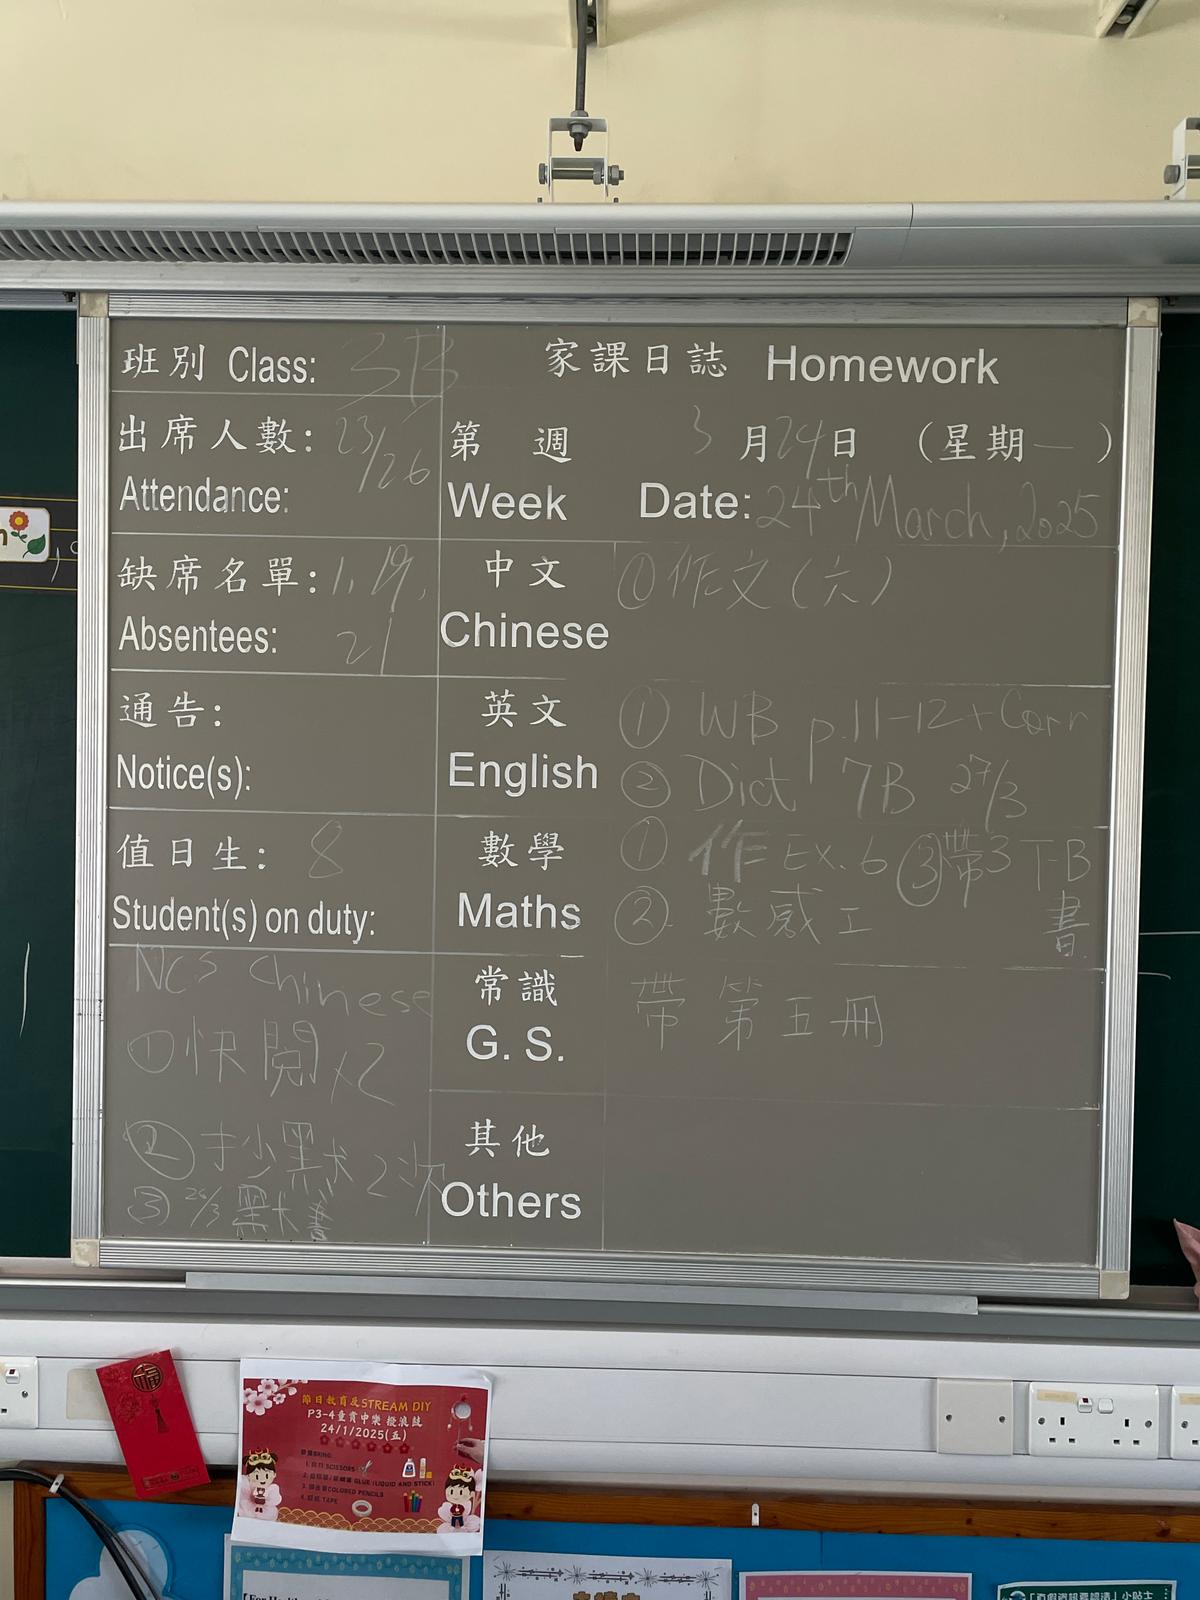 班別 Class: 3B
家課日誌 Homework
出席人數: 23/26
Attendance:
第 週 3月24日 (星期一)
Week Date: 24th March, 2025
缺席名單: 1, 19, 21
Absentees:
中文 ①作文(六)
Chinese
通告:
Notice(s):
英文 ① WB p.11-12 + Corr
English ② Dict 7B 27/3
值日生: 8
Student(s) on duty:
數學 ① 作 Ex. 6 ③帶3 T-B
Maths ② 數感工 書
NCS Chinese
①快閱x2
②抄黑木2次
③ 26/3 黑木書
常識 帶第五冊
G. S.
其他
Others
福
節日教育及STREAM DIY
P3-4童賞中樂 撥浪鼓
24/1/2025(五)
1. 剪刀 SCISSORS
GLUE (LIQUID AND STICK)
COLORED PENCILS
TAPE